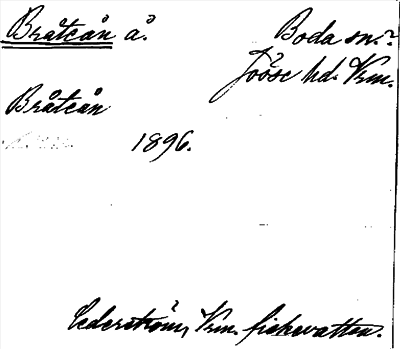 Bråtcån å.
Boda sn.?
Jösse hd. Vrm.
Bråtcån
1896.
Cederström, Vrm. fiskevatten.